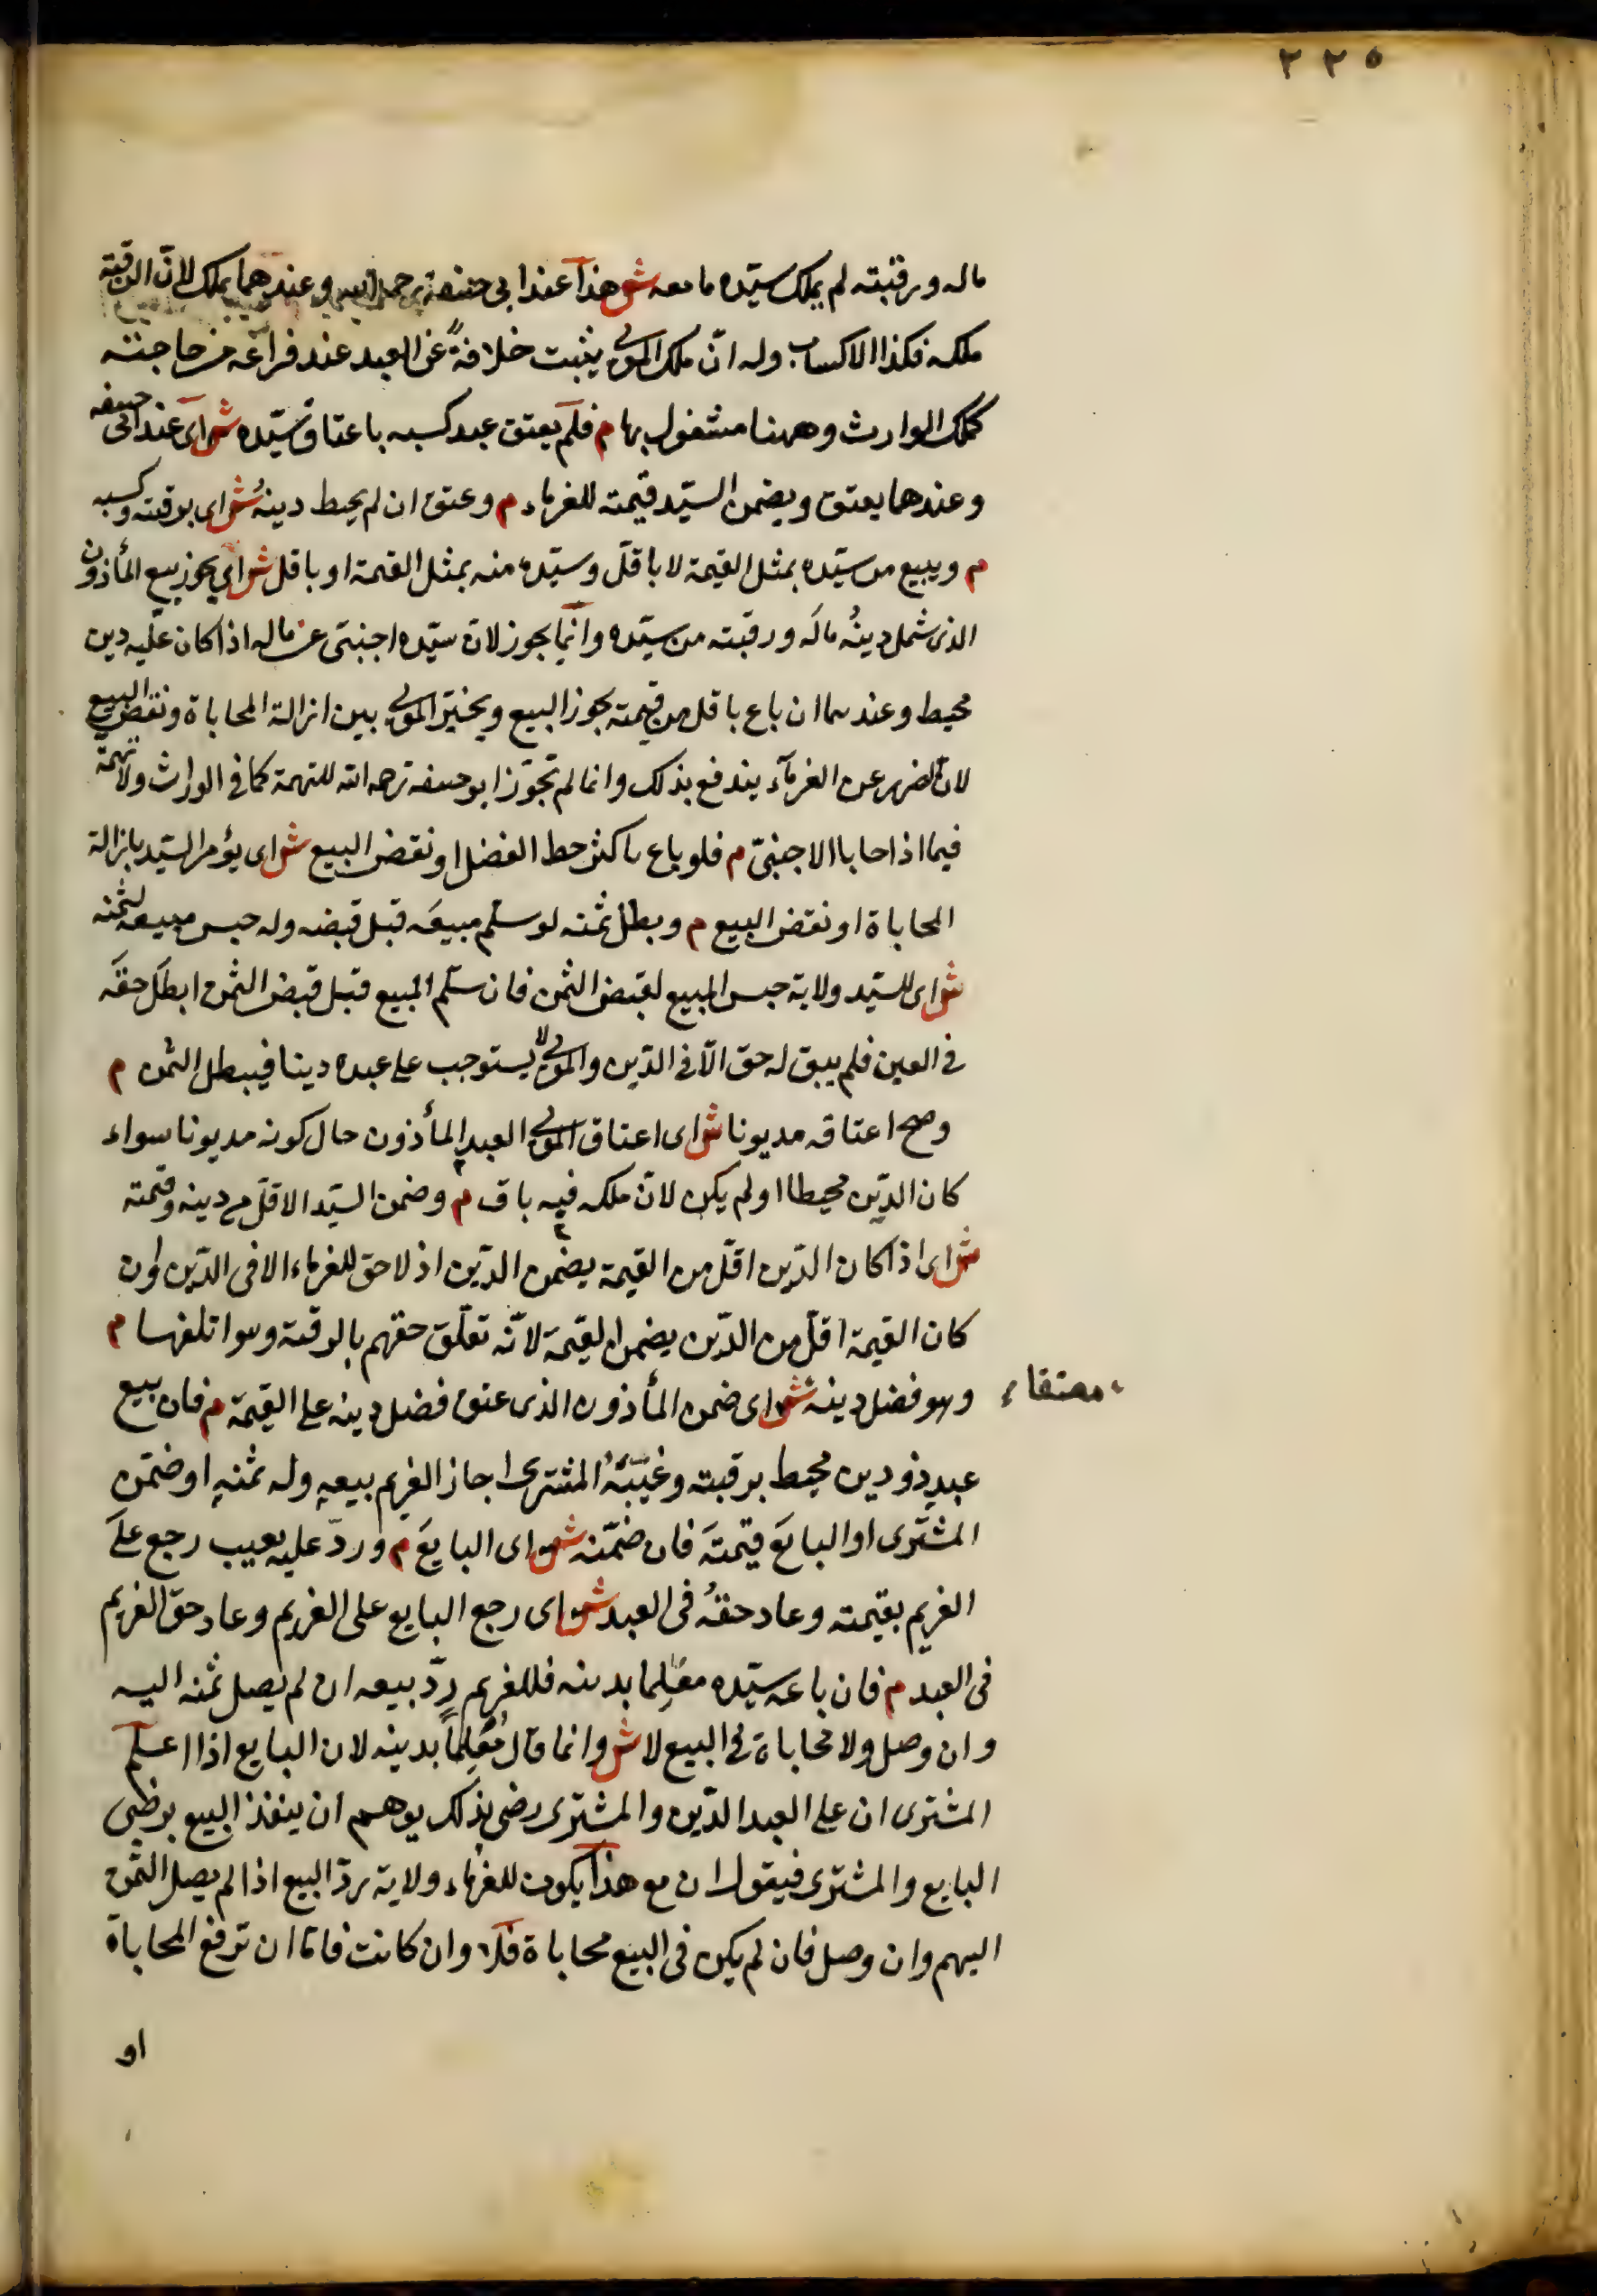 ٢٢٥
ماله ورقبته لم يملك سيّده مامعه ش هذا عند ابى حنيفة رحمه الله وعندهما يملك لانّ الرقبة
ملكه فكذا الاكساب وله انّ ملك المولى يثبت خلافةً عن العبد عند فراغه من حاجته
كملك الوارث وههنا مشغول بها م فلم يعتق عبد كسبه باعتاق سيّده ش اى عند ابى حنيفه
وعندهما يعتق ويضمن السيّد قيمته للغرماء م وعتق ان لم يحط دينهُ ش اى برقبته وكسبه
م ويبيع من سيّده بمثل القيمة لا باقلّ وسيّده منه بمثل القيمة او باقل ش اى يجوز بيع المأذون
الذى شمل دينُه مالَه ورقبته من سيّده وانّما يجوز لانّ سيّده اجنبىّ عن ماله اذا كان عليه دين
محيط وعندهما ان باع باقل من قيمته يجوز البيع ويخيّر المولى بين ازالة المحاباة ونقض البيع
لانّ الضرر عن الغرمآء يندفع بذلك وانما لم يجوّز ابو حنيفة رحمه الله للتهمة كما فى الوارث ولا تهمة
فيما اذا حابا الاجنبىّ م فلو باع باكثر حط الفضل او نقض البيع ش اى يؤمر السيّد بازالة
المحاباة او نقض البيع م وبطل ثمنه لو سلم مبيعَه قبل قبضه وله حبس مبيعه لثمنه
ش اى للسيّد ولاية حبس المبيع لقبض الثمن فان سلّم المبيع قبل قبض الثمن ابطل حقّه
فى العين فلم يبق له حق الّا فى الدّين والمولى لا يستوجب على عبده دينا فيبطل الثمن م
وصح اعتاقه مديونا ش اى اعتاق المولى العبد المأذون حال كونه مديونا سواء
كان الدّين محيطا او لم يكن لانّ ملكه فيه باق م وضمن السيّد الاقلّ من دينه وقيمته
ش اى اذا كان الدّين اقلّ من القيمة يضمن الدّين اذ لا حق للغرماء الا فى الدّين وان
كان القيمة اقلّ من الدّين يضمن القيمة لانّه تعلّق حقهم بالرقبة وهو اتلفها م
وهو فضل دينه ش اى ضمن المأذون الذى عتق فضل دينه على القيمة م فان بيع
معتقا
عبد ذو دين محيط برقبته وغيّبهُ المشترى اجاز الغريم بيعه وله ثمنه او ضمّن
المشترى او البايعَ قيمتَه فان ضمّنه ش اى البايعَ م وردّ عليه بعيب رجع على
الغريم بقيمته وعاد حقهُ فى العبد ش اى رجع البايع على الغريم وعاد حق الغريم
فى العبد م فان باعه سيّده معلِما بدينه فللغريم ردّ بيعه ان لم يصل ثمنه اليه
وان وصل ولا محاباة فى البيع لا ش وانما قال مُعلِمًا بدينه لان البايع اذا اعلم
المشترى ان على العبد الدّين والمشترى رضى بذلك يوهم ان ينفذ البيع برضى
البايع والمشترى فيقول ان مع هذا يكون للغرماء ولاية ردّ البيع اذا لم يصل الثمن
اليهم وان وصل فان لم يكن فى البيع محاباة فلا وان كانت فامّا ان ترفع المحاباة
او